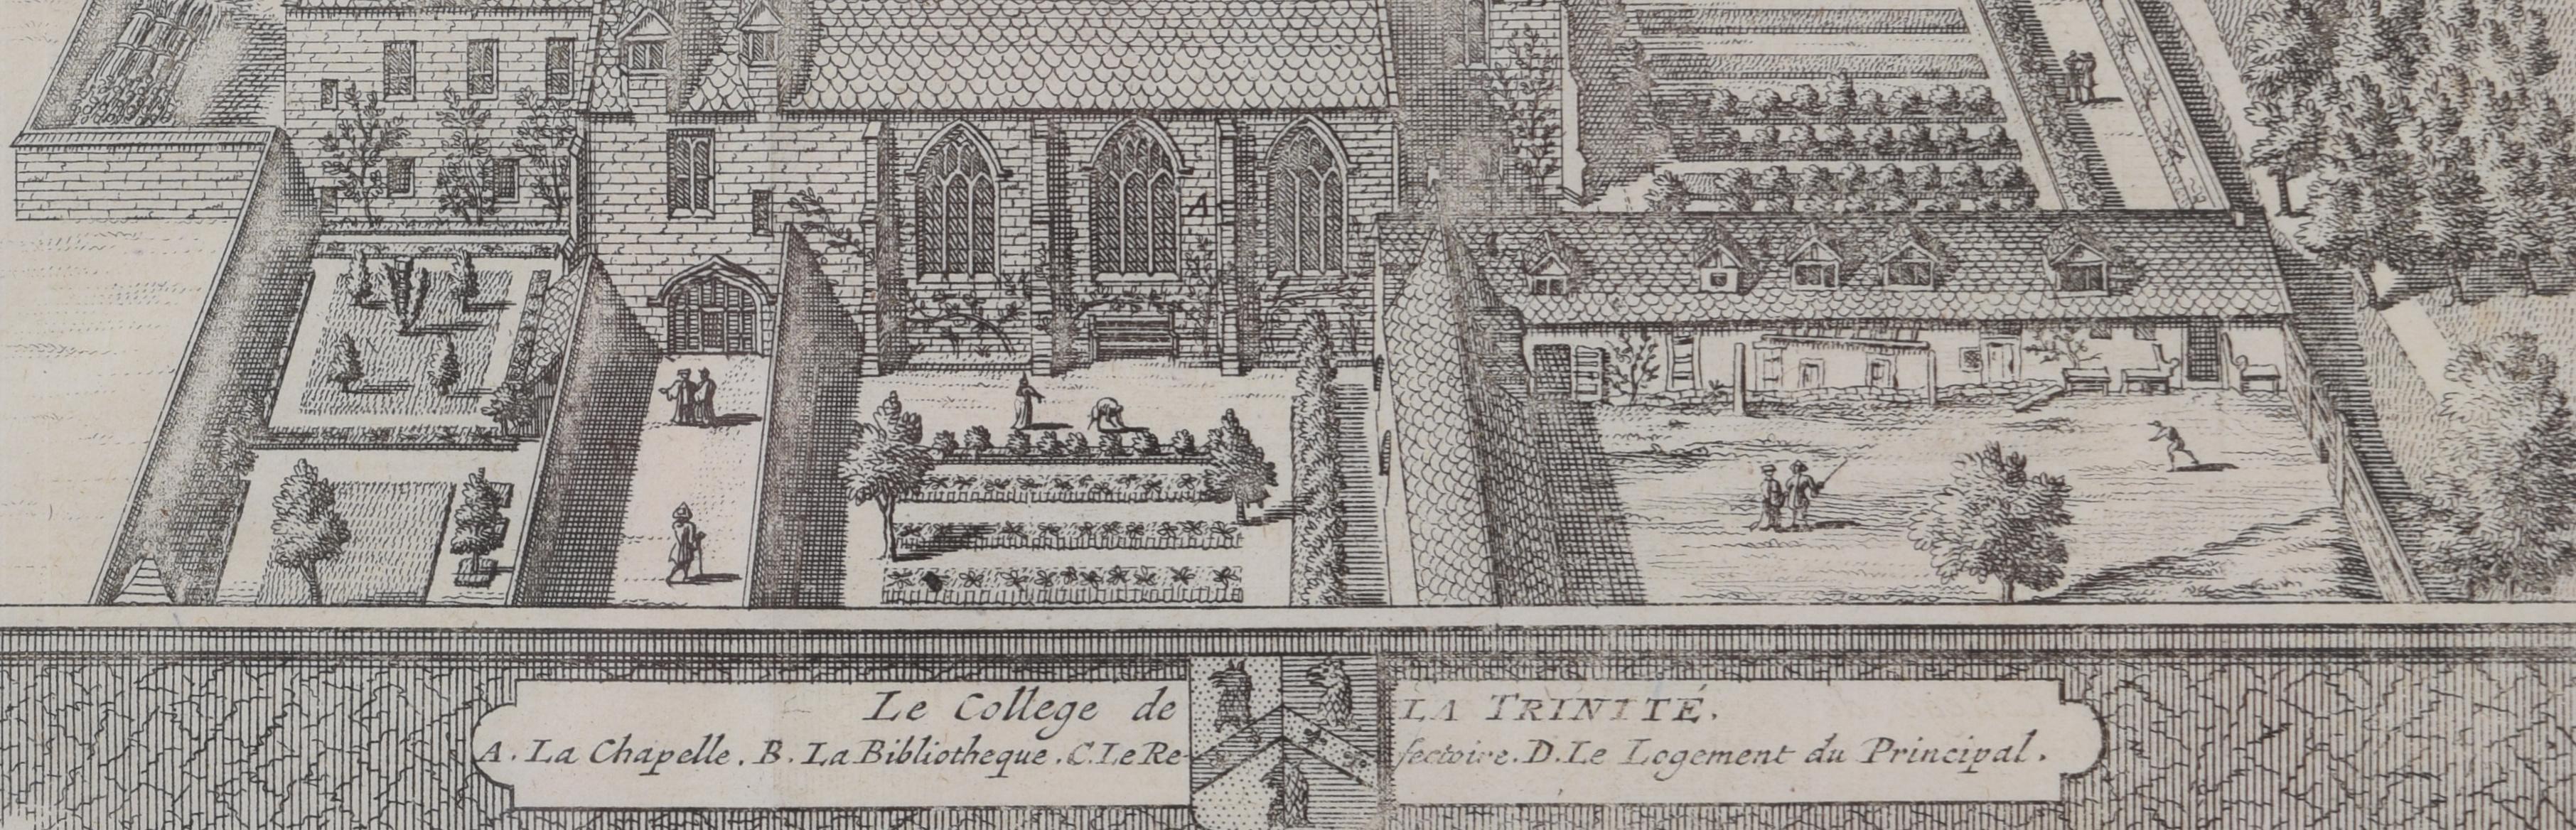 A
Le College de LA TRINITÉ.
A. La Chapelle. B. La Bibliotheque. C. Le Refectoire. D. Le Logement du Principal.